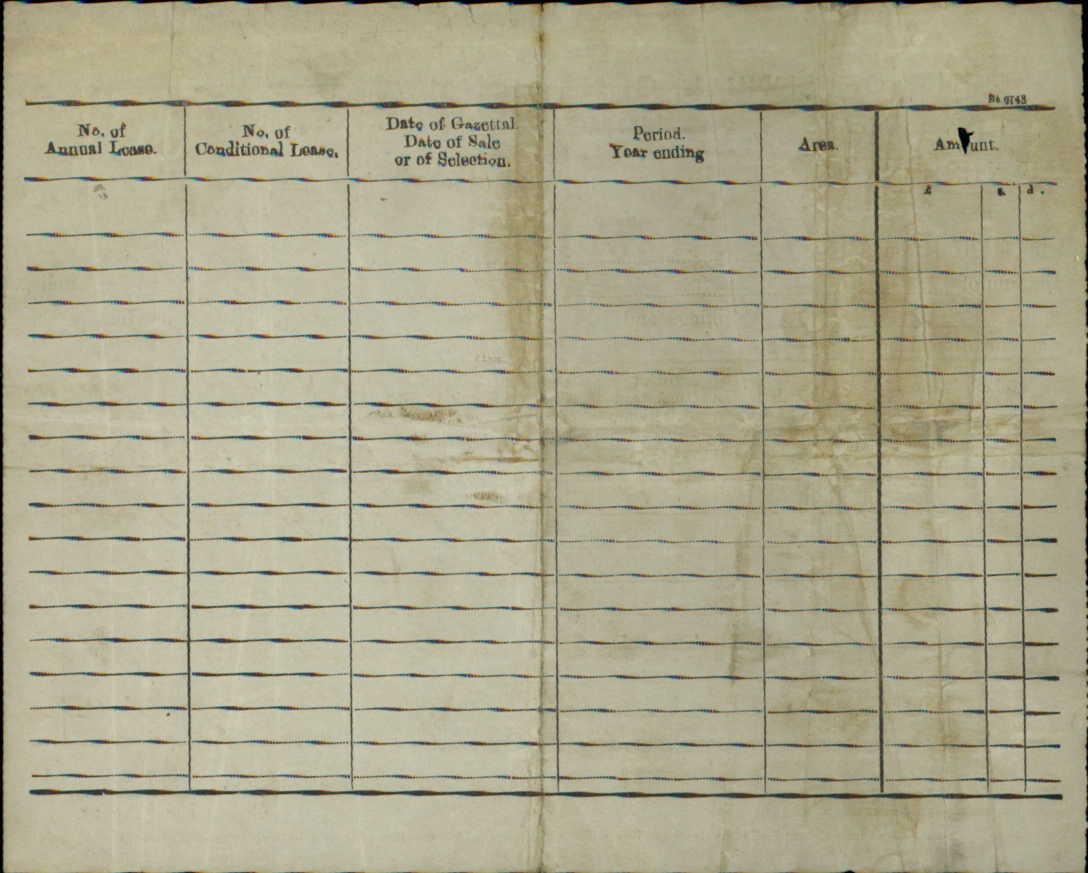 No. of
Annual Lease.
No. of
Conditional Lease.
Date of Gazettal.
Date of Sale
or of Selection.
Period.
Year ending
Area.
Amount.
£ s. d.